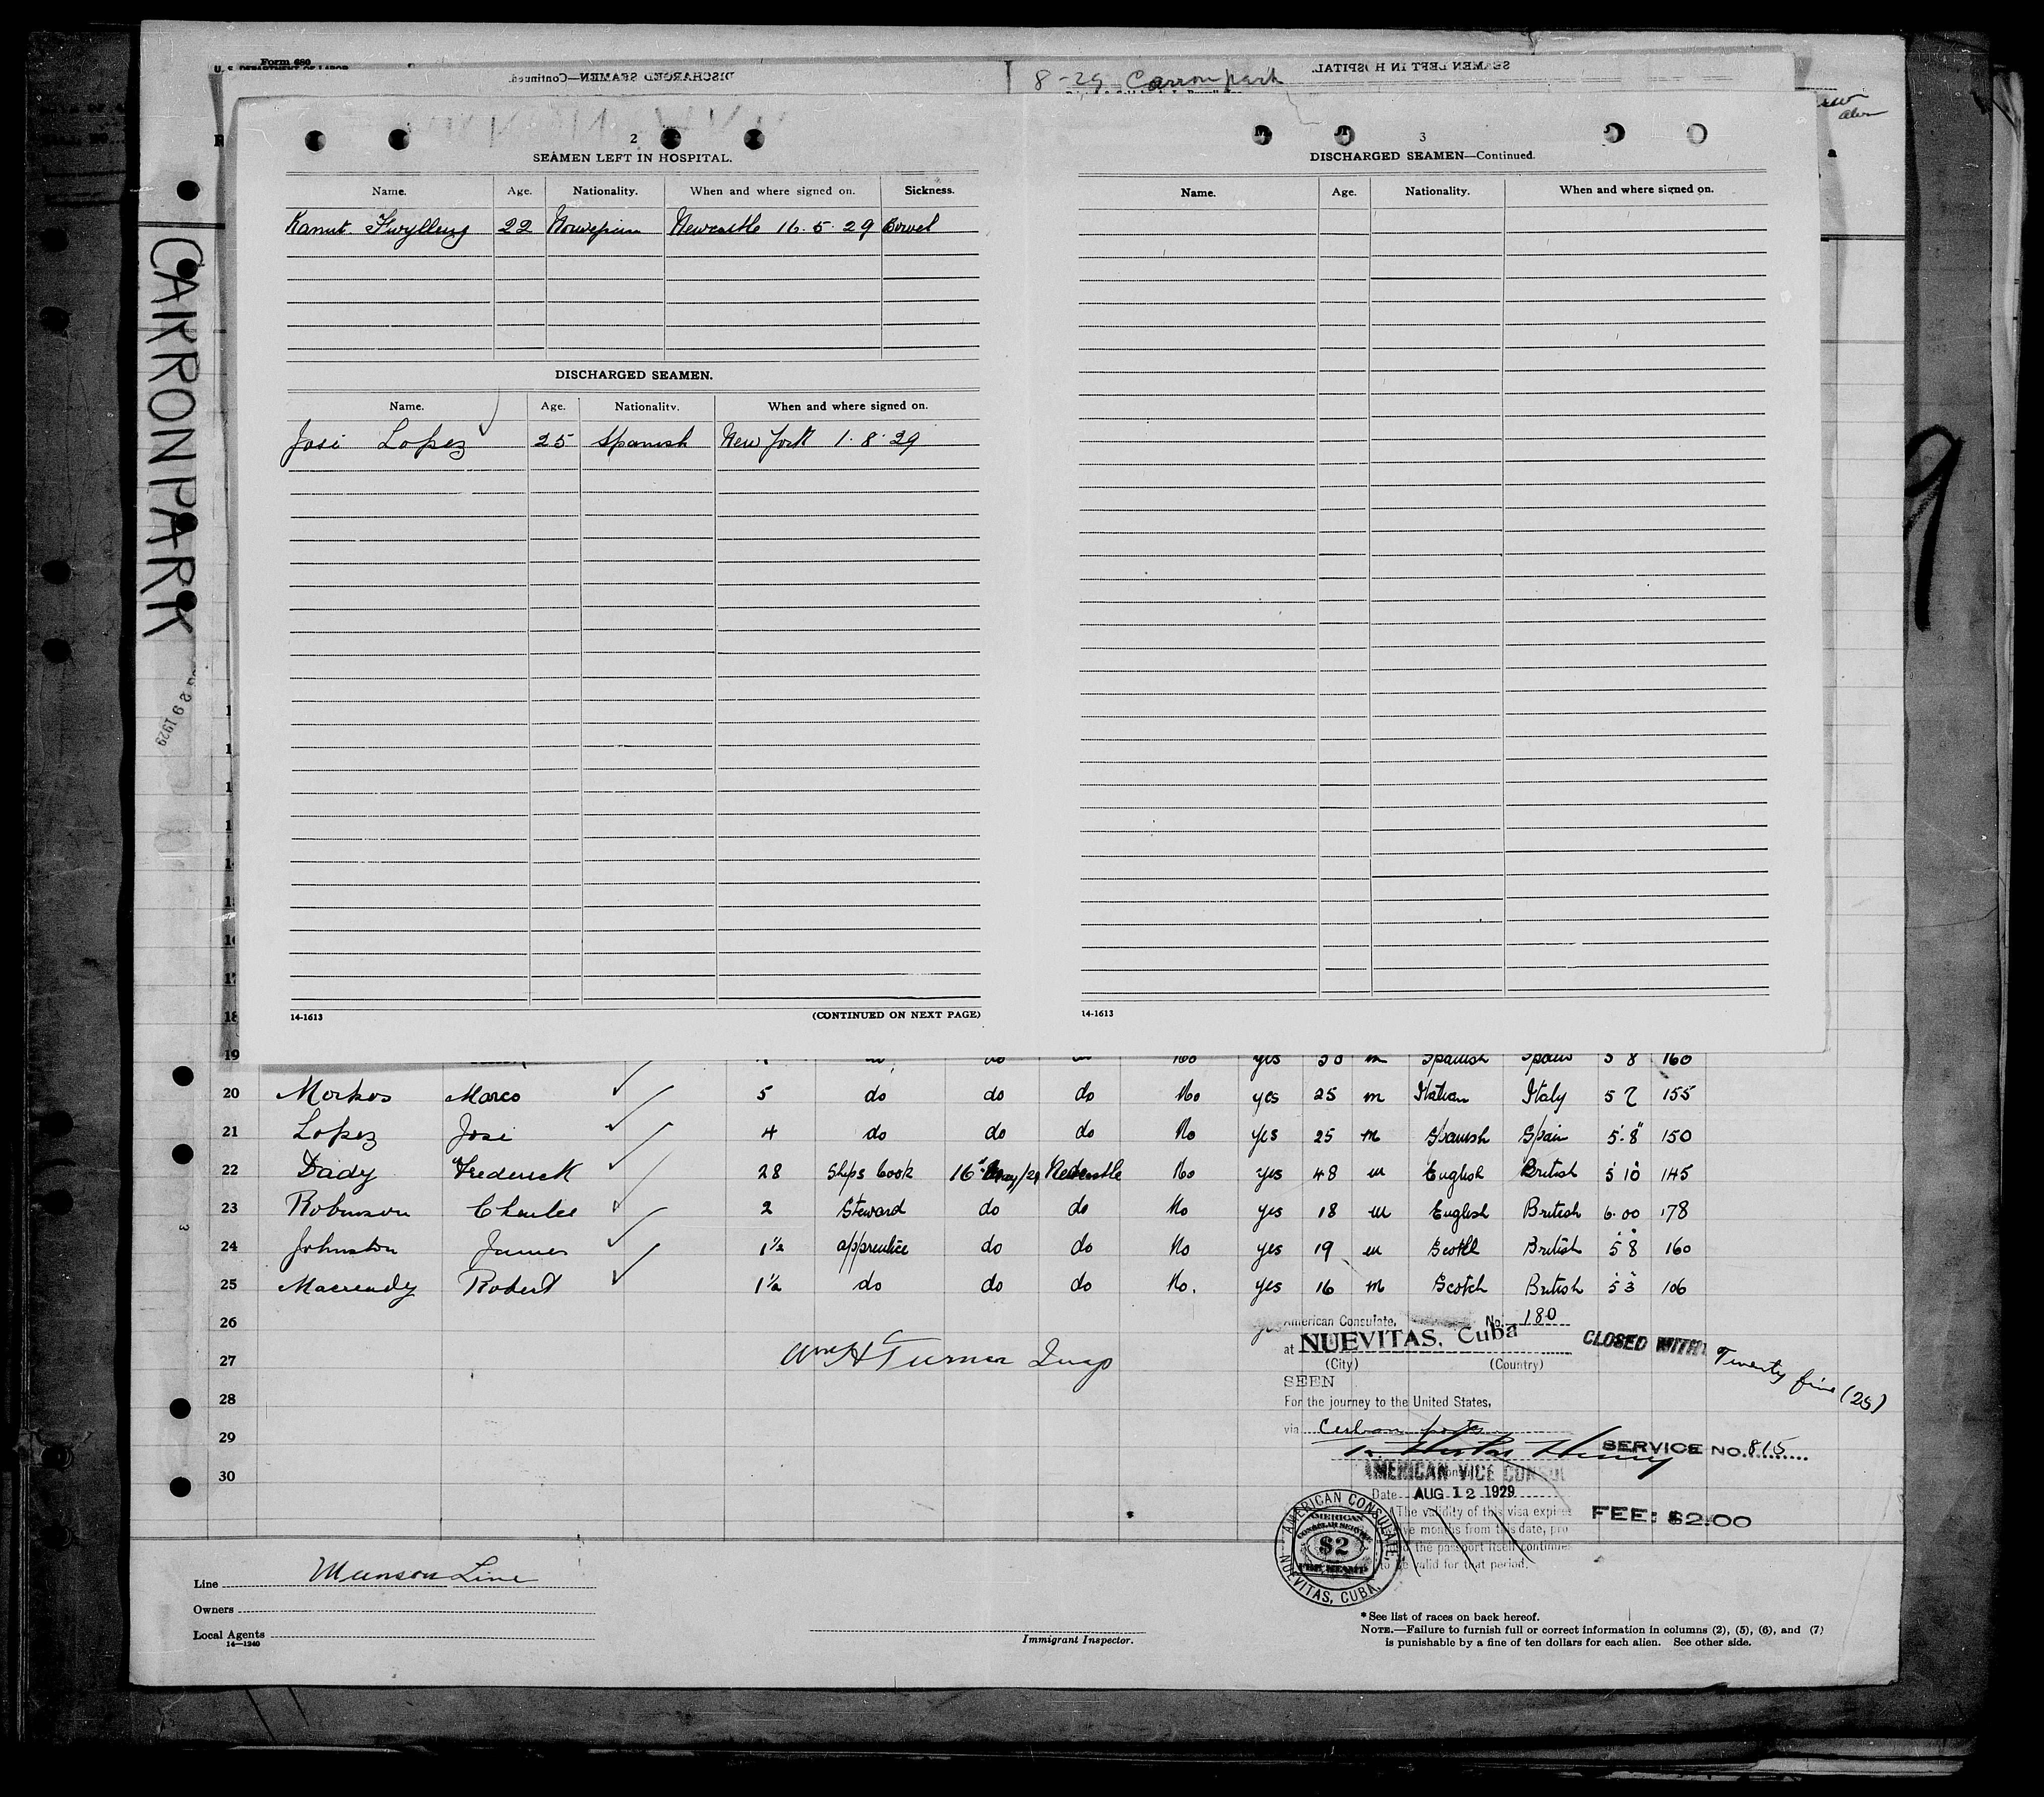 Form 680
U. S. DEPARTMENT OF LABOR
DISCHARGED SEAMEN—Continued.
8-29 Carronpark
SEAMEN LEFT IN HOSPITAL.
CARRONPARK
29 1929
9
2
SEAMEN LEFT IN HOSPITAL.
Name. Age. Nationality. When and where signed on. Sickness.
22 Newcastle 16. 5. 29 Bowel
DISCHARGED SEAMEN.
Name. Age. Nationality. When and where signed on.
Josi Lopez 25 Spanish New York 1. 8. 29
14-1613 (CONTINUED ON NEXT PAGE)
3
DISCHARGED SEAMEN—Continued.
Name. Age. Nationality. When and where signed on.
14-1613
18
19 do No yes 30 m Spanish Spain 5 8 160
20 Morkos Marco 5 do do do No yes 25 m Italian Italy 5 7 155
21 Lopez Josi 4 do do do No yes 25 m Spanish Spain 5' 8" 150
22 Dady Frederick 28 Ships Cook 16 May/29 Newcastle No yes 48 m English British 5 10 145
23 Robinson Charles 2 Steward do do No yes 18 m English British 6. 00 178
24 Johnston James 1½ apprentice do do No yes 19 m Scotch British 5 8 160
25 Macready Robert 1½ do do do No. yes 16 m Scotch British 5 3 106
26
27
28
29
30
Wm H Turner Insp
American Consulate, No. 180
at NUEVITAS, Cuba
(City) (Country)
SEEN
For the journey to the United States,
via Cuban ports
AMERICAN VICE CONSUL
Date AUG 12 1929
The validity of this visa expires
months from this date, pro
the passport itself continues
to be valid for that period.
CLOSED WITH Twenty five (25)
SERVICE NO. 815
FEE: $2.00
AMERICAN CONSULATE, NUEVITAS, CUBA.
AMERICAN
CONSULAR SERVICE
$2
FEE STAMP
Line Munson Line
Owners
Local Agents
14—1240
Immigrant Inspector.
* See list of races on back hereof.
NOTE.—Failure to furnish full or correct information in columns (2), (5), (6), and (7)
is punishable by a fine of ten dollars for each alien. See other side.